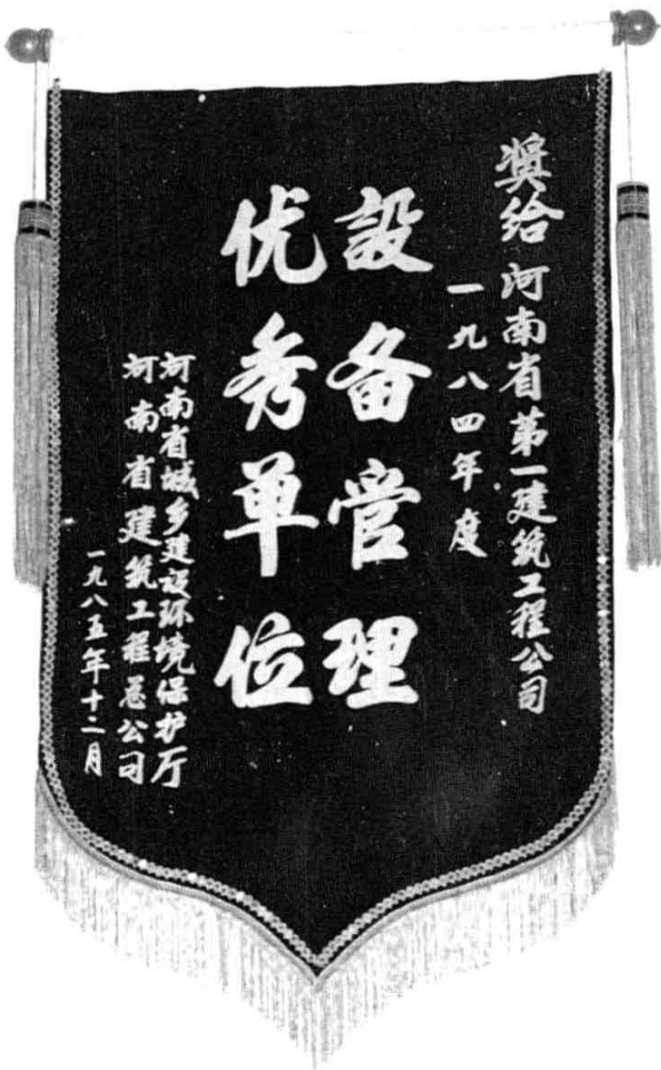 奖给河南省第一建筑工程公司
一九八四年度
設备管理
优秀单位
河南省城乡建设环境保护厅
河南省建筑工程总公司
一九八五年十二月